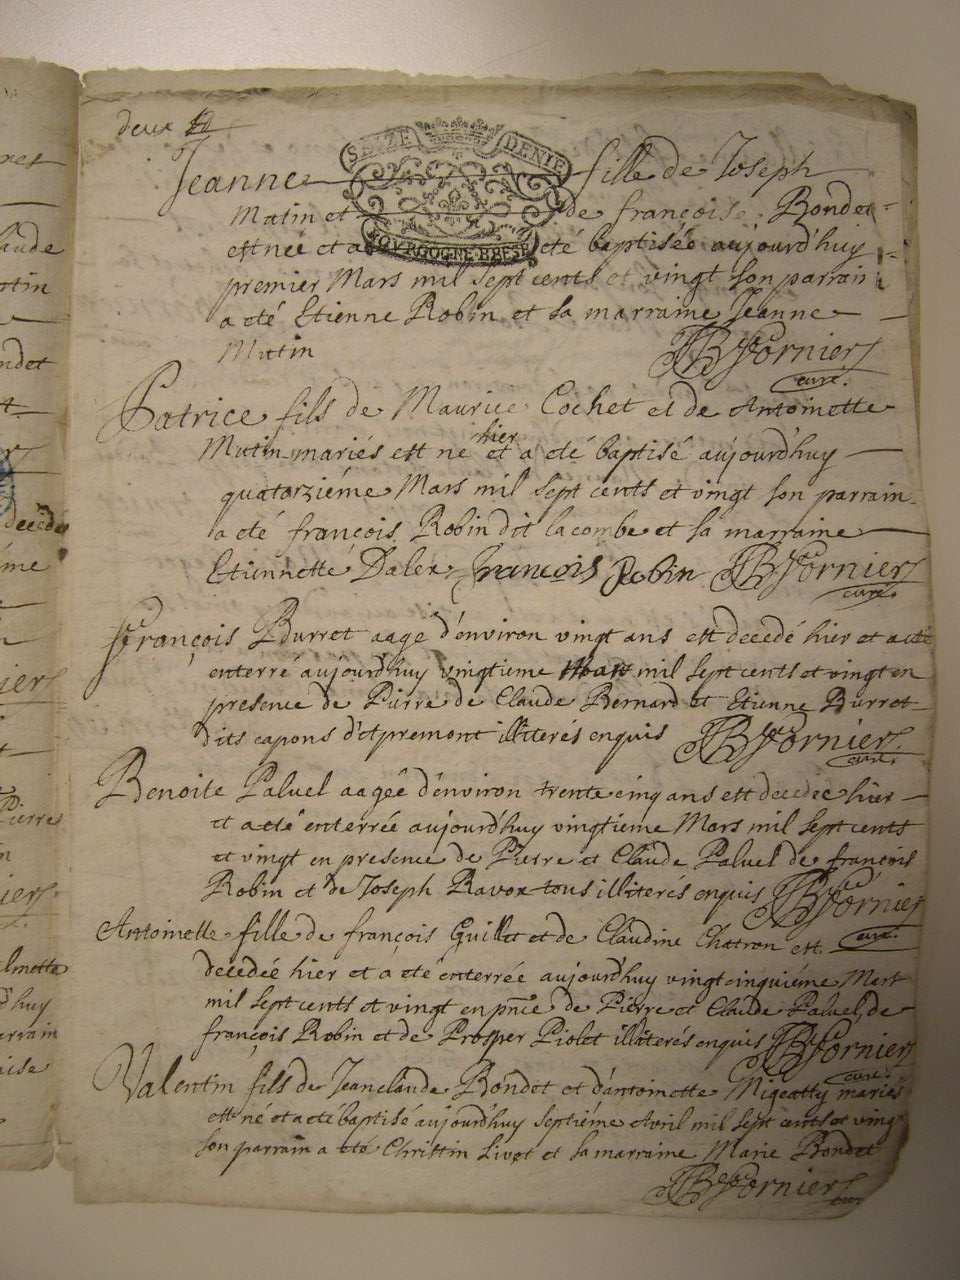 deux
SEIZE DENIE
BOURGOGNE BRESE
Jeanne fille de Joseph
Mutin et de françoise Bondet
est née et a été baptisée aujourd'huy
premier Mars mil sept cents et vingt son parrain
a été Etienne Robin et sa marraine Jeanne
Mutin JB fornier
curé.
Patrice fils de Maurice Cochet et de Antoinette
Mutin mariés est né hier et a été baptisé aujourd'huy
quatorziéme Mars mil sept cents et vingt son parrain
a été françois Robin dit lacombe et sa marraine
Etiennette Dalex françois Robin JB fornier
curé.
françois Burret aagé d'environ vingt ans est decedé hier et a été
enterré aujourd'huy vingtieme mars mil sept cents et vingt en
presence de Pierre de Claude Bernard et Etienne Burret
dits capons d'etpremont illiterés enquis JB fornier
curé.
Benoite Paluel aagée d'environ trente cinq ans est decedée hier
et a été enterrée aujourd'huy vingtieme Mars mil sept cents
et vingt en presence de Pierre et Claude Paluel de françois
Robin et de Joseph Ravox tous illiterés enquis JB fornier
curé.
Antoinette fille de françois Guillet et de Claudine Chatron est
decedée hier et a été enterrée aujourd'huy vingt cinquiéme Mars
mil sept cents et vingt en pnce de Pierre et Claude Paluel, de
françois Robin et de Prosper Piolet illiterés enquis JB fornier
curé.
Valentin fils de Jeanclaude Bondet et d'antoinette mariés
est né et a été baptisé aujourd'huy septiéme Avril mil sept cents et vingt
son parrain a été Christin Livet et sa marraine Marie Bondet
JB fornier
curé